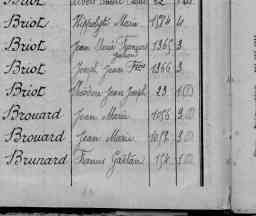 Briot
Briot Hippolyte Marie 4
Briot Jean René François 1365 3
Briot Joseph Jean Frcs 1366 3
Briot Théodore Jean Joseph 23 1
Brouard Jean Marie 1056 2
Brouard Jean Marie 1057 2
Brunard Francis Gaëtan 154 1